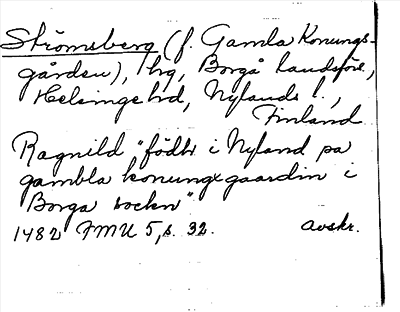 Strömsberg (f. Gamla Konungs-
gården), hrg, Borgå landsförs.,
Helsinge hd, Nylands l.,
Finland
Ragnild "födh i Nyland pa
gambla konungxgaardin i
Borga sockn"
1482 FMU 5, s. 32. avskr.